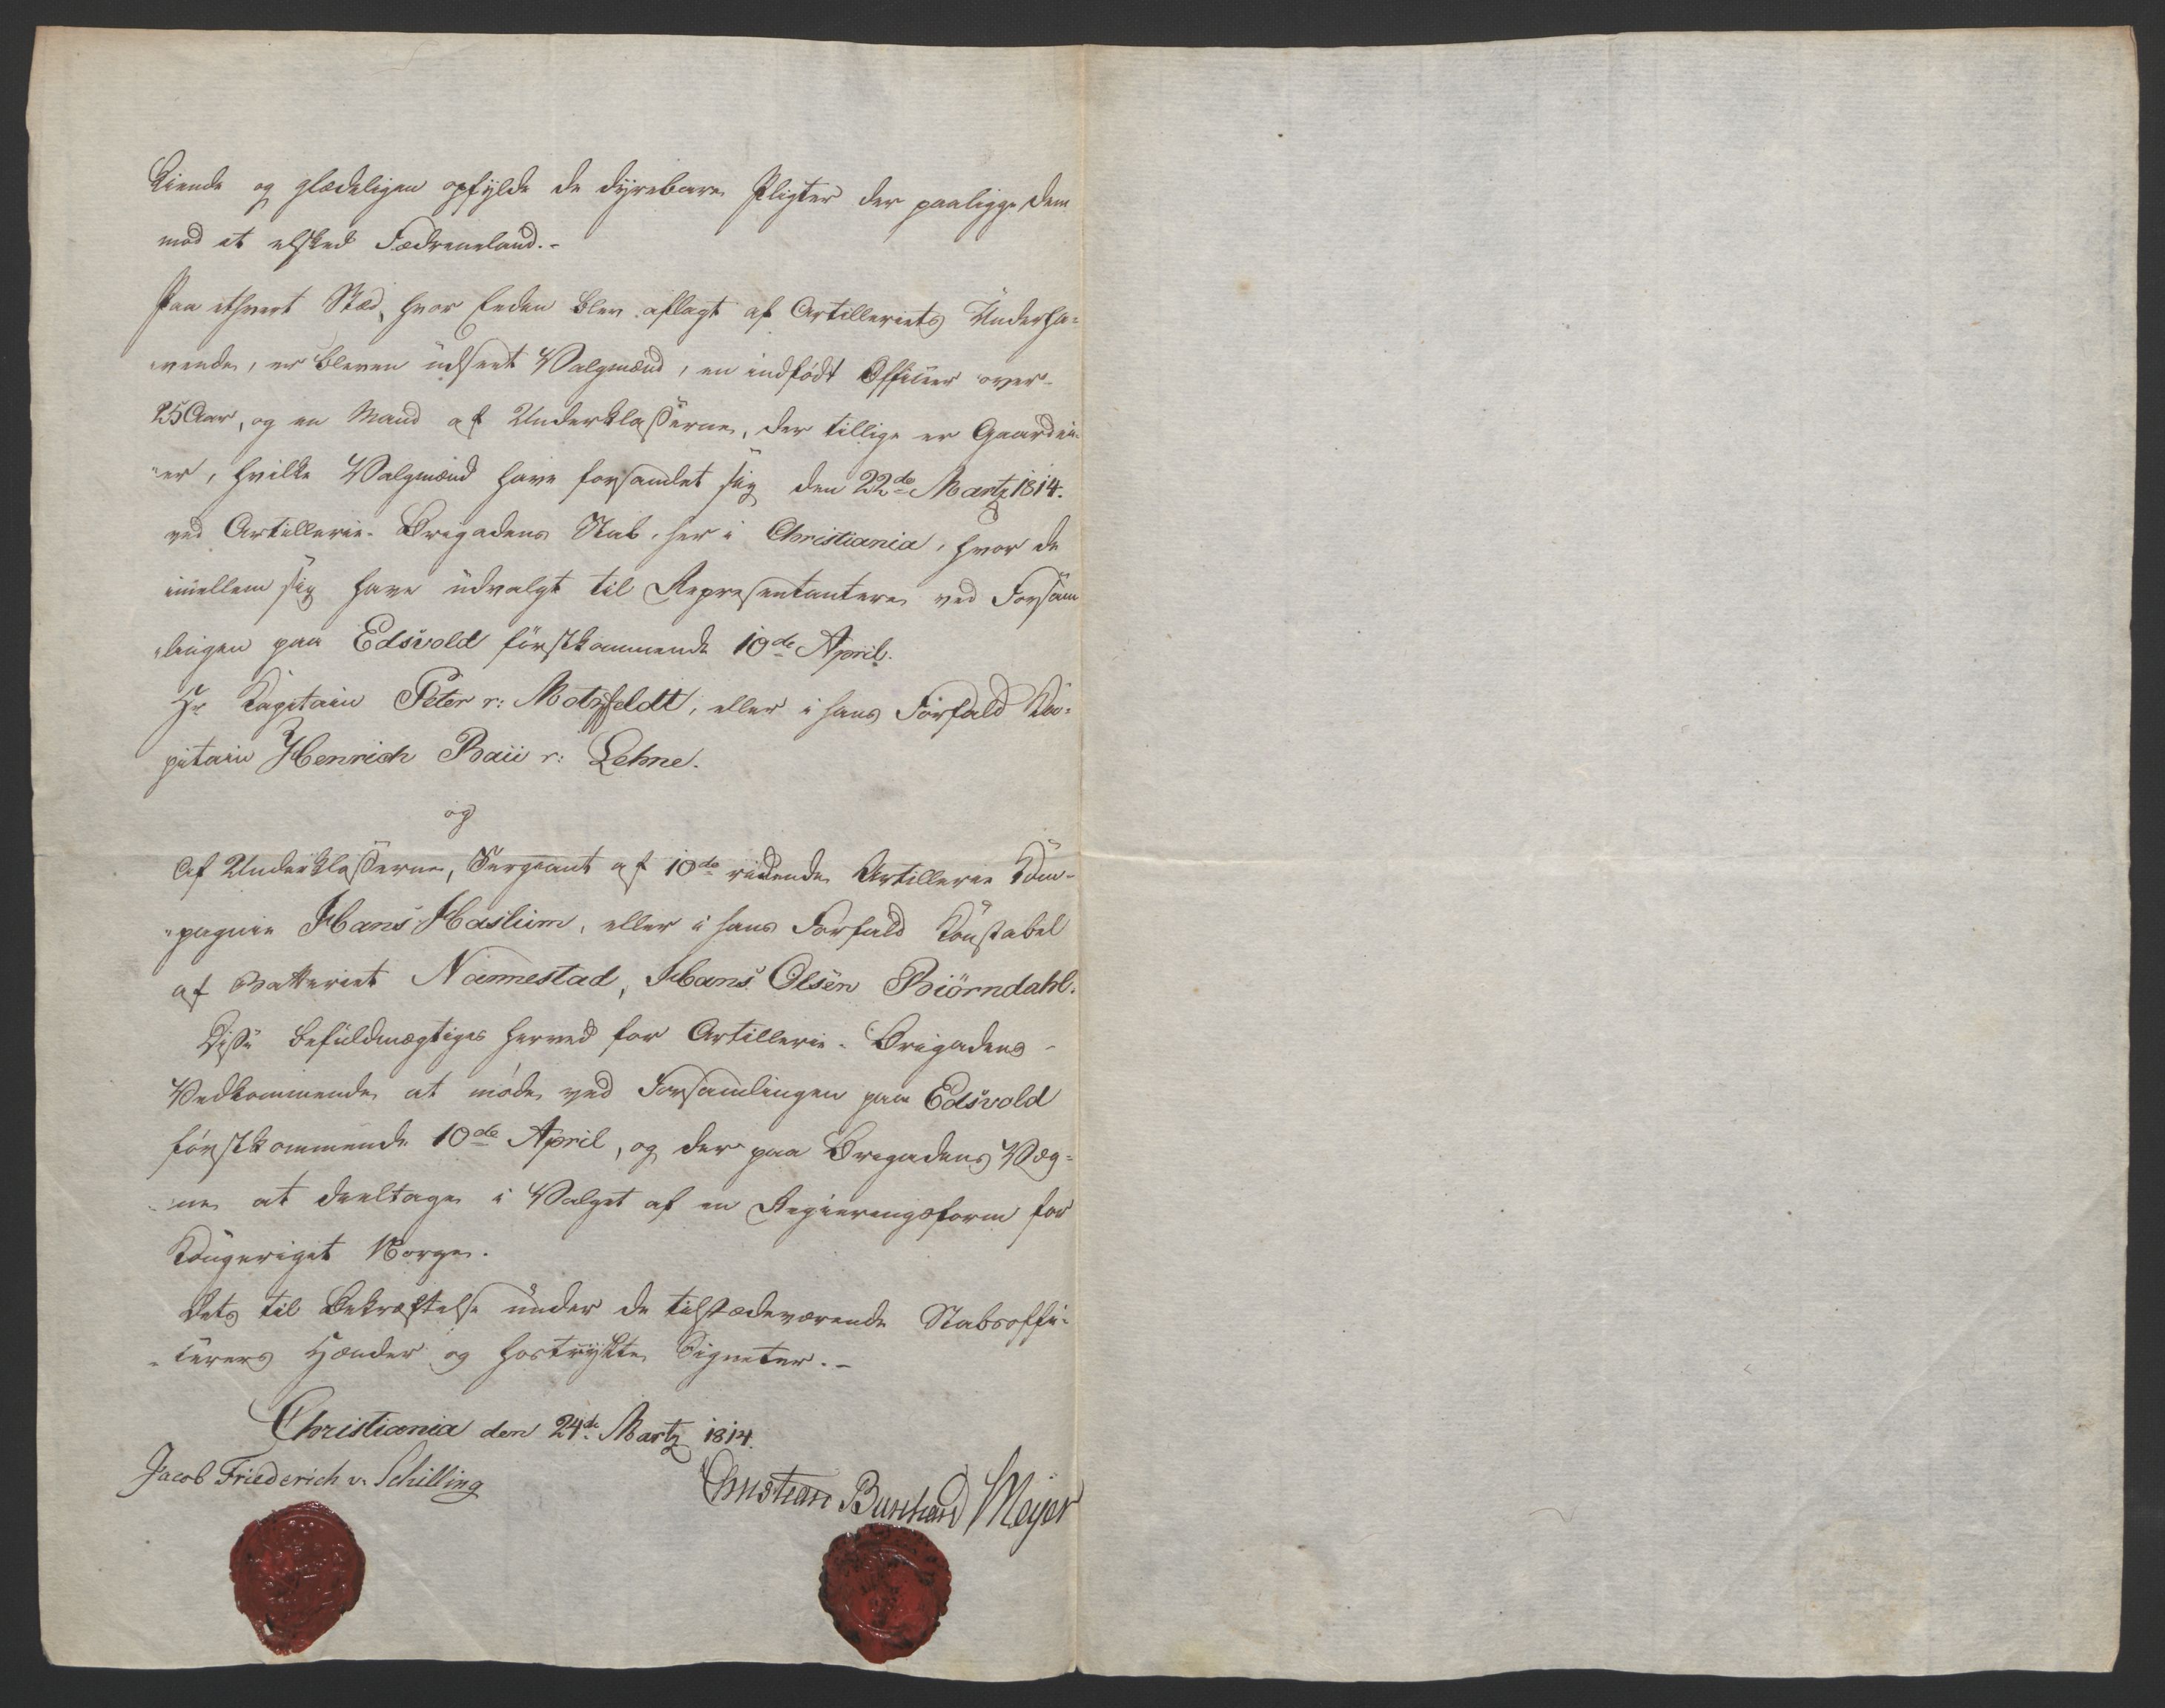 kiende og glædeligen opfylde de dyrebare Pligter der paaligge dem
mod et elsked Fædreneland.-
Paa ethvert Sted, hvor Eeden blev aflagt af Artilleriets Underha-
vende, er bleven udseet Valgmænd, en indfödt Officier over
25 Aar, og en Mand af Underklasserne, der tillige er Gaardei-
"er, hvilke Valgmænd have forsamlet sig den 22de Martz 1814.
ved Artillerie-Brigadens Stab, her i Christiania, hvor de
imellem sig have udvalgt til Repræsentantere ved Forsam
"lingen paa Edsvold förstkommende 10de April.
Hr Kapitain Peter v: Motzfeldt, eller i hans Forfald Ka-
pitain Henrich Baii v: Lehne.
og
Af Underklasserne, Sergeant af 10de ridende Artillerie Kom-
"pagnie Hans Haslum, eller i hans Forfald Konstabel
af Batteriet Nannestad, Hans Olsen Biörndahl.
Disse befuldmægtiges herved for Artillerie-Brigadens
Vedkommende at möde ved Forsamlingen paa Edsvold
förstkommende 10de April, og der paa Brigadens Veg-
ne at deeltage i Valget af en Regieringsform for
Kongeriget Norge.
Dets til Bekræftelse under de tilstædeværende Stabsoffi-
"cierers Hænder og hostrykte Signeter.-
Christiania den 24de Martz 1814.
Jacob Friederich v. Schilling
Christian Burchard Meyer